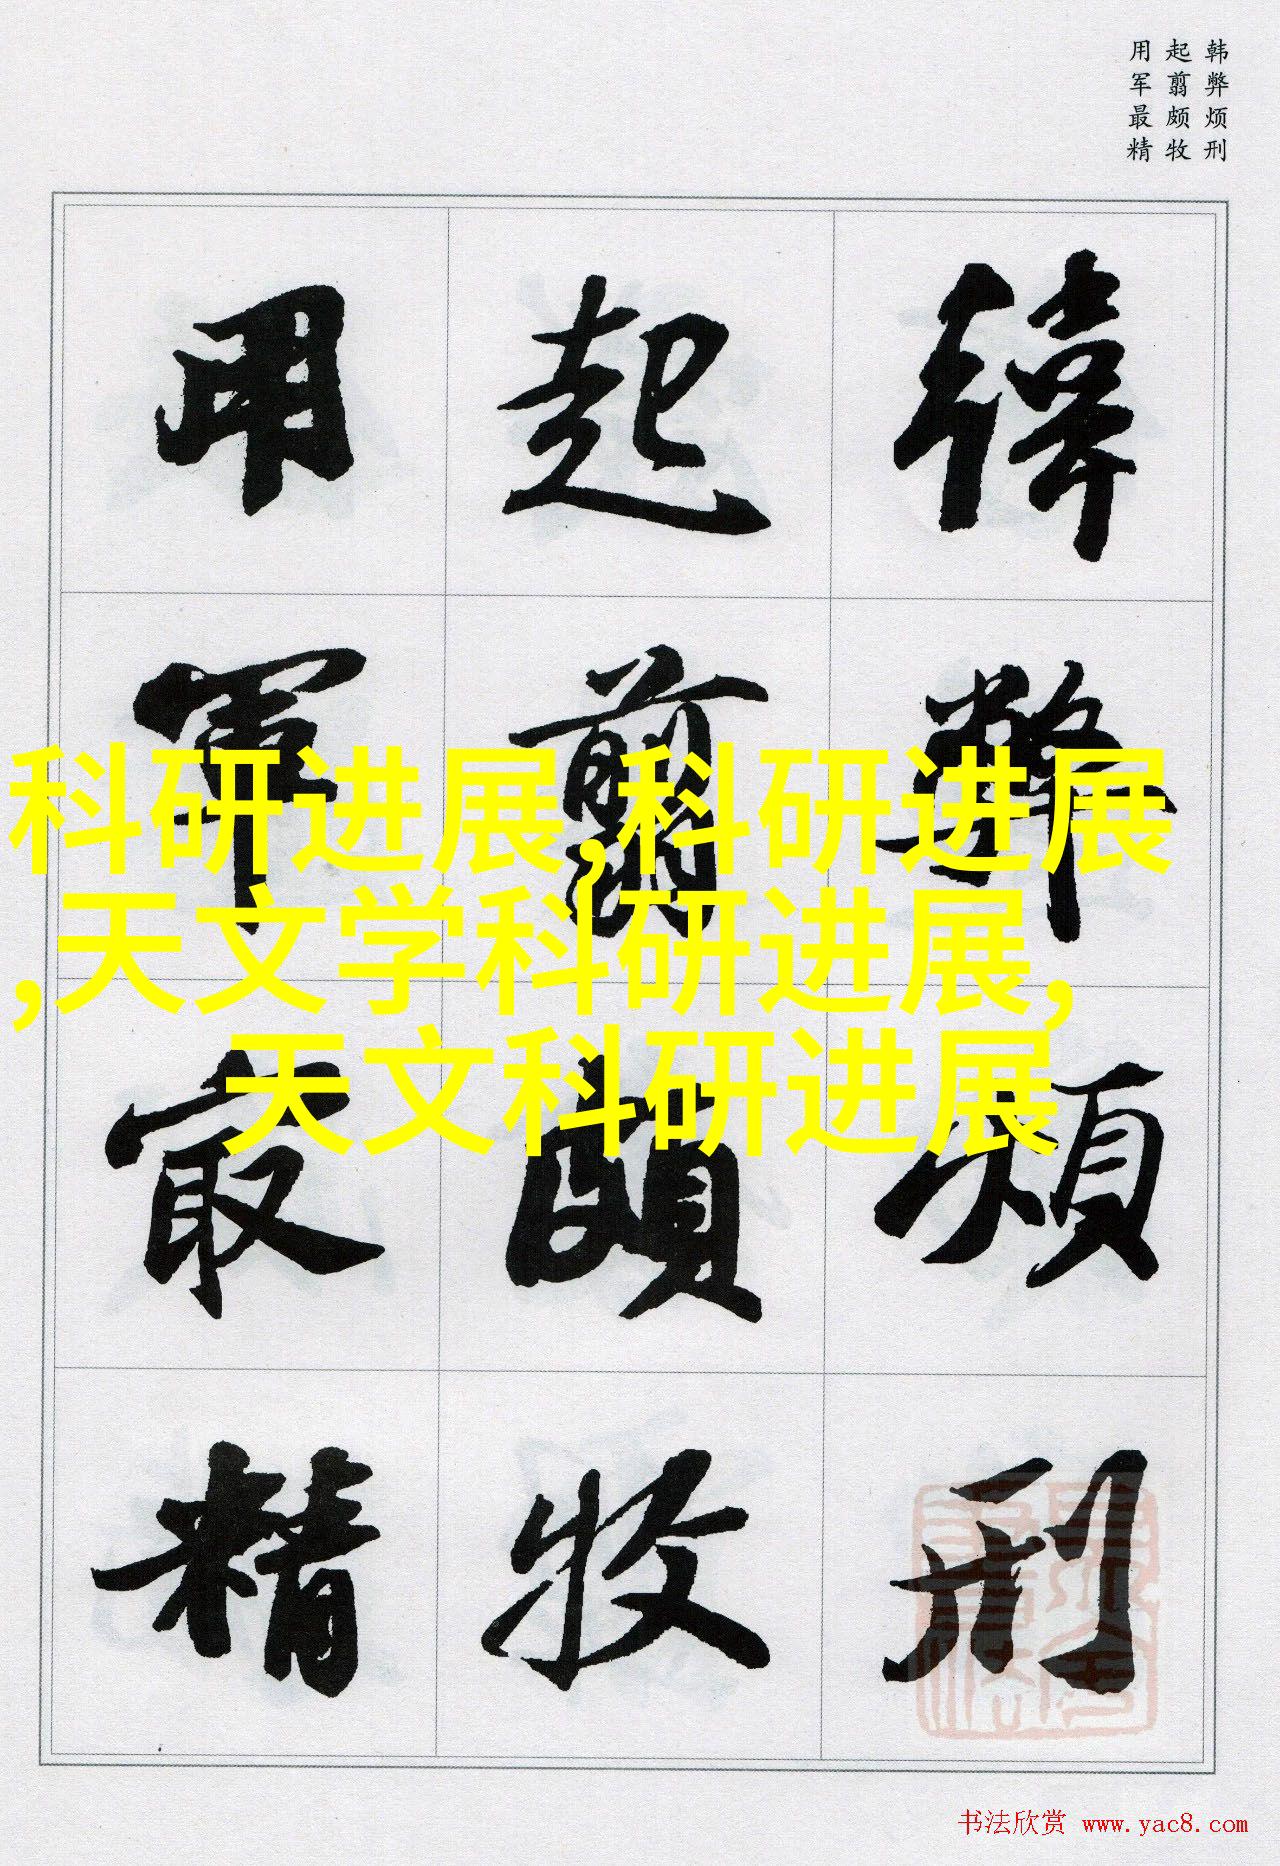 韩弊烦刑
起翦颇牧
用军最精
韩弊烦刑
起翦颇牧
用军最精
科研进展,科研进展
,天文学科研进展,
天文科研进展
书法欣赏 www.yac8.com